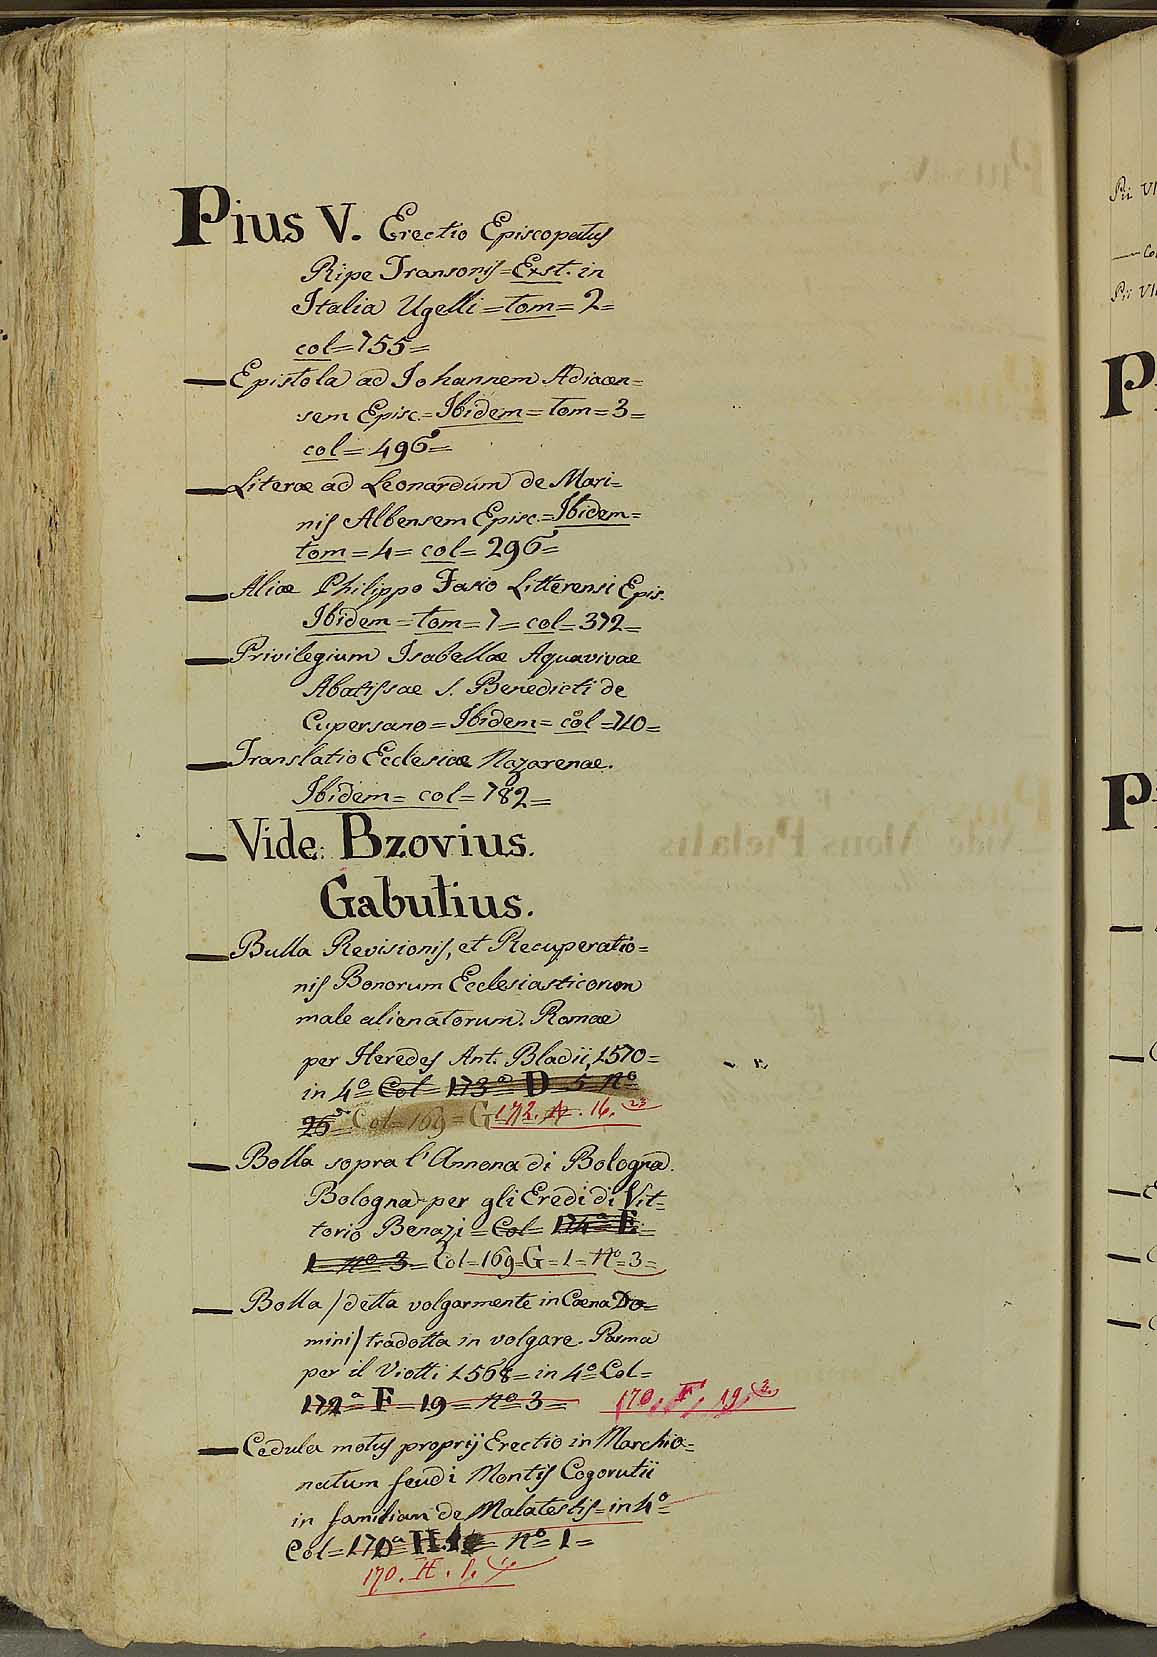 Pius V. Erectio Episcopatus
Ripe Transonis = Exst. in
Italia Ugelli = tom = 2 =
col = 755 =
— Epistola ad Iohannem Adiacen=
sem Episc. = Ibidem = tom = 3 =
col = 496 =
— Literæ ad Leonardum de Mari=
nis Albensem Episc. = Ibidem =
tom = 4 = col = 296 =
— Aliæ Philippo Fasio Litterensi Epis.
Ibidem = tom = 7 = col = 372 =
— Privilegium Isabellæ Aquavivae
Abatissae S. Benedicti de
Cupersano = Ibidem = col = 710 =
— Translatio Ecclesiæ Nazarenae.
Ibidem = col = 782 =
— Vide: Bzovius.
Gabutius.
— Bulla Revisionis, et Recuperatio=
nis Bonorum Ecclesiasticorum
male alienatorum. Romae
per Heredes Ant. Bladii, 1570 =
in 4º = Col = 173ª D 5 Nº
26 = Col = 169 = G 172. A. 16. 23
— Bolla sopra l'Annona di Bologna.
Bologna per gli Eredi di Vit=
torio Benazi = Col = 174ª E
1 = Nº 3 = Col = 169 = G = 1 = Nº = 3 =
— Bolla / detta volgarmente in Cæna Do=
mini / tradotta in volgare. Parma
per il Viotti 1568 = in 4º = Col =
172ª F = 19 = Nº 3 = 170. F. 19. 3
— Cedula motus proprij Erectio in Marchio=
natum feudi Montis Cogorutii
in familian de Malatestis = in 4º =
Col = 170ª H. Nº 1 =
170. H. 1.